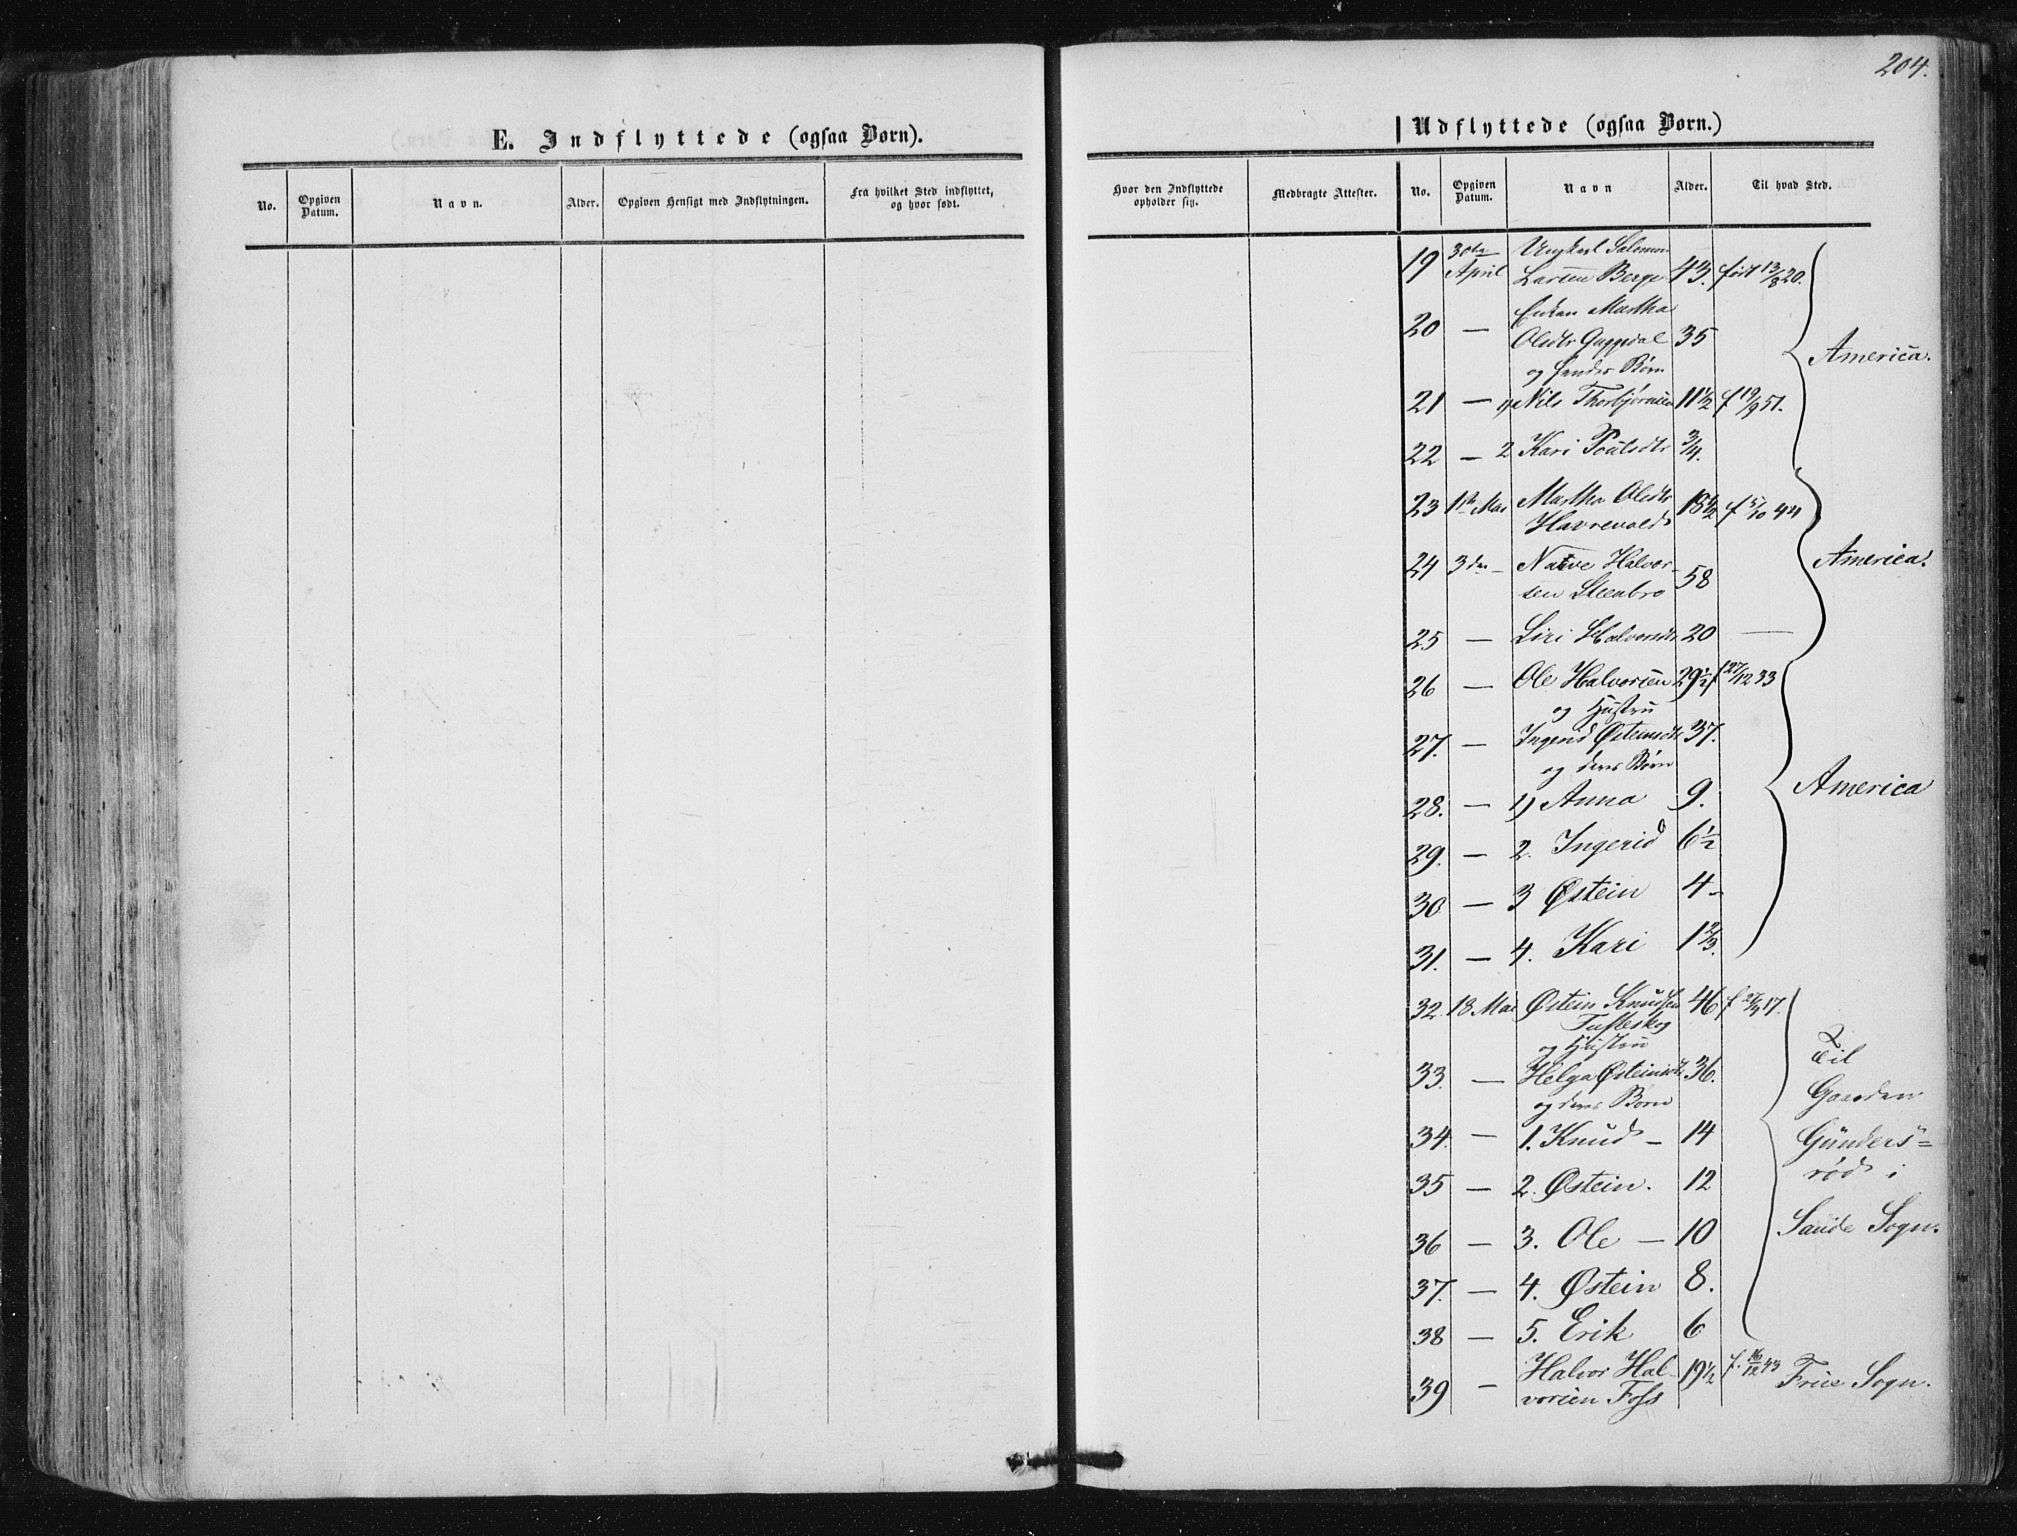 204.
E. Indflyttede (ogsaa Børn).
Udflyttede (ogsaa Børn.)
No.
Opgiven Datum.
Navn.
Alder.
Opgiven Hensigt med Indflytningen.
Fra hvilket Sted indflyttet, og hvor født.
Hvor den Indflyttede opholder sig.
Medbragte Attester.
No.
Opgiven Datum.
Navn
Alder.
Til hvad Sted.
19 30te April Ungkarl Salomon
Larsen Berge 43. født 13/8 20.
20 — Enken Martha
Olsdtr 35
og hendes Børn
America.
21 — 1) Nils Thorbjørnsen 11 1/2 f 19/9 51.
22 — 2 Kari Poulsdtr 3/4.
23 1ste Mai Martha Olsdtr 18 1/2 f 5/10 44
Havrevold
24 3die — Narve Halvor-
sen Steenbro 58
America.
25 — Siri Halvorsdtr 20 —
26 — Ole Halvorsen 29 1/2 f 27/12 33
og Hustru
27. — Ingerid Østeinsdtr 37.
og deres Børn
28. — 1) Anna 9.
America
29. — 2. Ingerid 6 1/2
30 — 3 Østein 4 —
31. — 4. Kari 1 2/3.
32. 18 Mai Østein Knudsen 46 f 27/3 17.
Tufteskog
og Hustru
33. — Helga Østeinsdtr 36.
og deres Børn
34. — 1. Knud — 14
35 — 2. Østein. 12
36 — 3. Ole — 10
37. — 4. Østein 8.
38 — 5. Erik 6
Til
Gaarden
Gunders=
rød i
Sande Sogn.
39 — Halvor Hal-
vorsen Foss 19 1/2 f. 16/12 43 Frue Sogn.